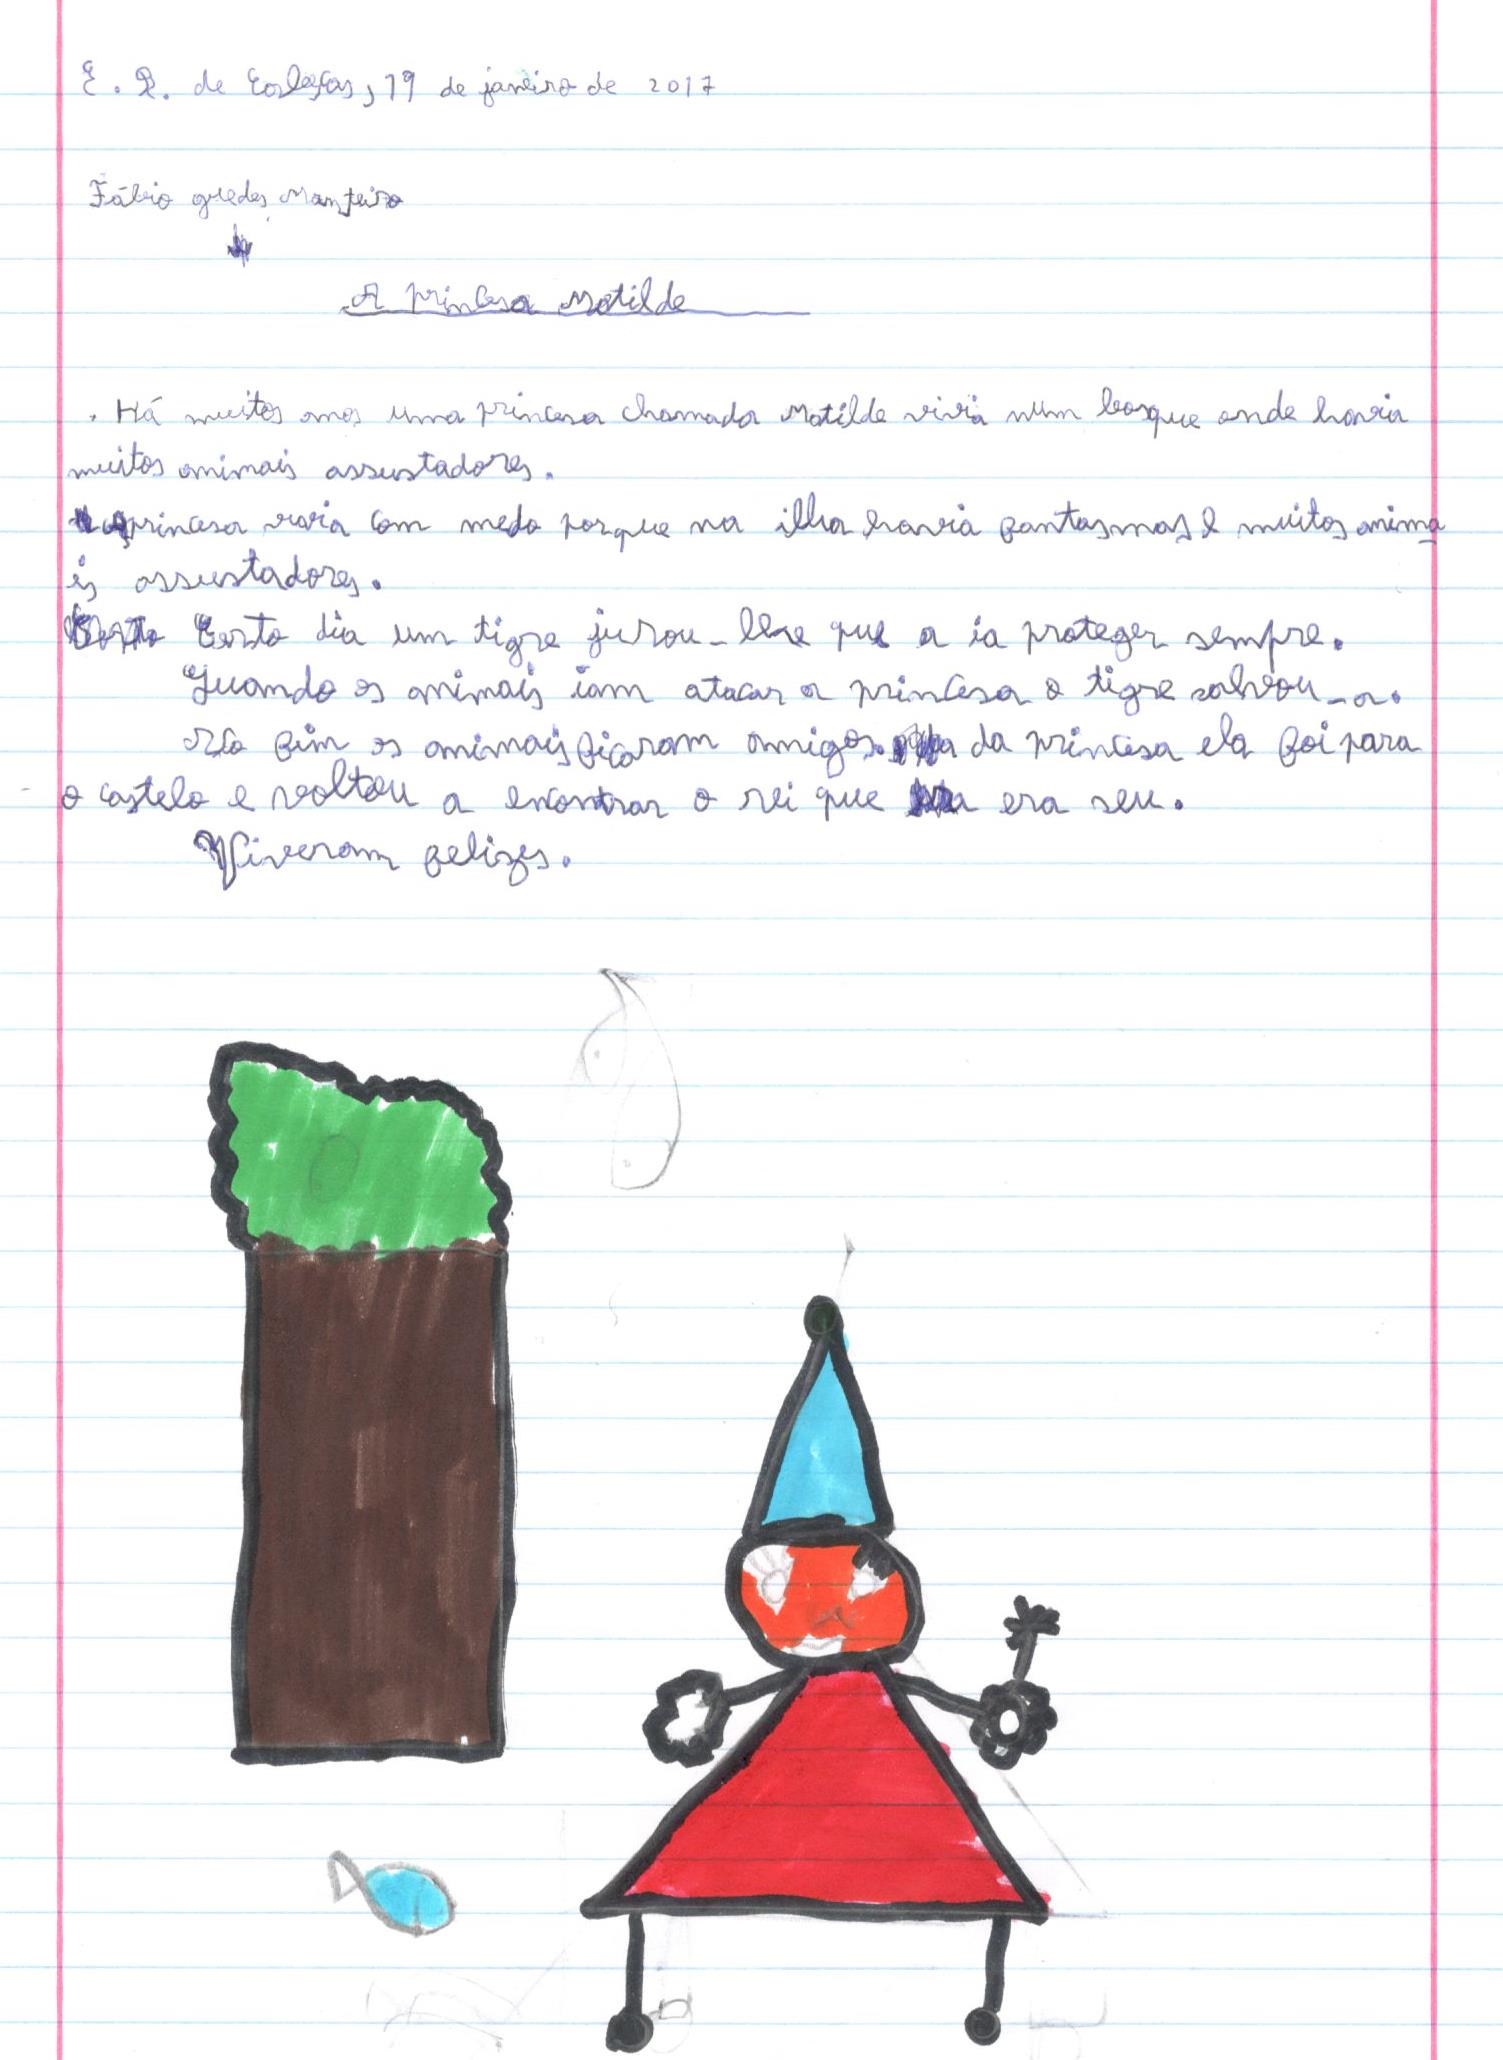 E. B. de            , 19 de janeiro de 2017
Fábio guedes Monteiro
A princesa Matilde
. Há muitos anos uma princesa chamada Matilde vivia num bosque onde havia
muitos animais assustadores.
princesa vivia com medo porque na ilha havia fantasmas e muitos anima
is assustadores.
Certo dia um tigre jurou-lhe que a ia proteger sempre.
Quando os animais iam atacar a princesa o tigre salvou-a.
No fim os animais ficaram amigos. da princesa ela foi para
o castelo e voltou a encontrar o rei que era seu.
Viveram felizes.